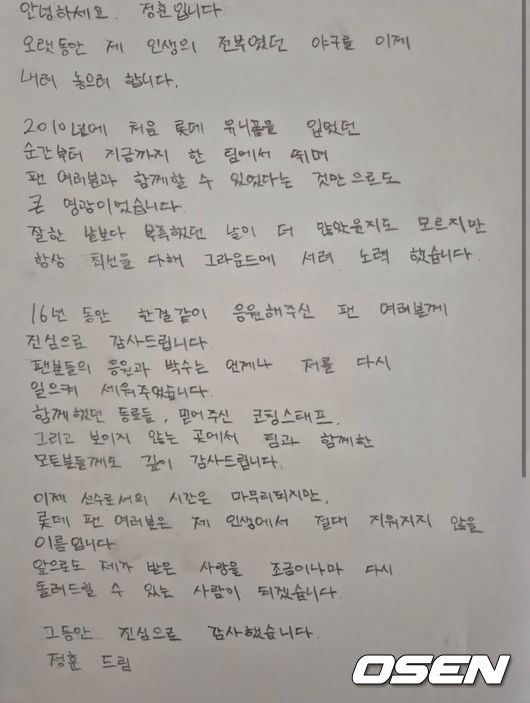 안녕하세요. 정훈입니다
오랫동안 제 인생의 전부였던 야구를 이제
내려 놓으려 합니다.
2010년에 처음 롯데 유니폼을 입었던
순간부터 지금까지 한 팀에서 뛰며
팬 여러분과 함께할 수 있었다는 것만으로도
큰 영광이었습니다.
잘한 날보다 부족했던 날이 더 많았을지도 모르지만
항상 최선을 다해 그라운드에 서려 노력 했습니다.
16년 동안 한결같이 응원해주신 팬 여러분께
진심으로 감사드립니다.
팬분들의 응원과 박수는 언제나 저를 다시
일으켜 세워주었습니다.
함께했던 동료들, 믿어주신 코칭스태프,
그리고 보이지 않는 곳에서 팀과 함께한
모든분들께도 깊이 감사드립니다.
이제 선수로서의 시간은 마무리되지만,
롯데 팬 여러분은 제 인생에서 절대 지워지지 않을
이름입니다
앞으로도 제가 받은 사랑을 조금이나마 다시
돌려드릴 수 있는 사람이 되겠습니다.
그동안 진심으로 감사했습니다.
정훈 드림
OSEN